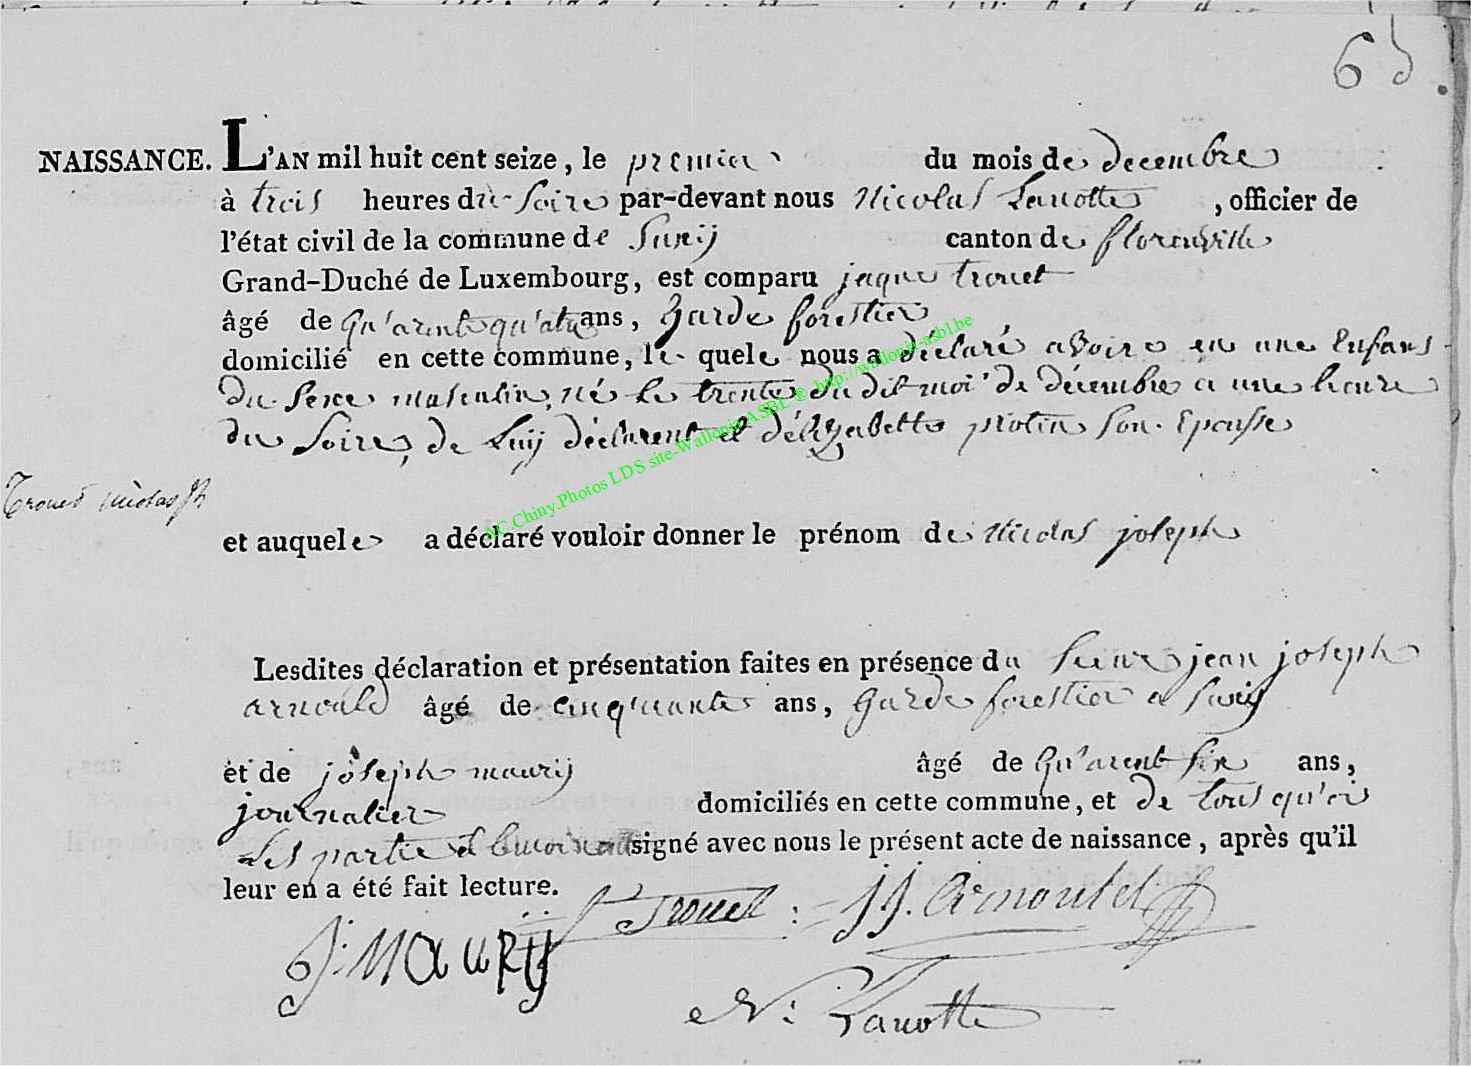 65.
NAISSANCE. L'AN mil huit cent seize, le premier du mois de decembre
à trois heures du Soire par-devant nous Nicolas Lanotte, officier de
l'état civil de la commune de Suxij canton de florenville
Grand-Duché de Luxembourg, est comparu jaque trouet
âgé de Qu'arente qu'atre ans, Garde forestier
domicilié en cette commune, le quele nous a déclaré avoire eu une Enfans
du Sexe masculin, né le trente du dit moi de décembre a une heure
du Soire, de Luij déclarent et d'élizabette protin Son Epousse
Trouet nicolas Jh
et auquele a déclaré vouloir donner le prénom de Nicolas joseph
Lesdites déclaration et présentation faites en présence du Sieur jean joseph
arnould âgé de cinquante ans, Garde forestier a Suxij
et de joseph maurij âgé de Qu'arent Six ans,
journalier domiciliés en cette commune, et de tous qu'oi
Les partie et signé avec nous le présent acte de naissance, après qu'il
leur en a été fait lecture.
Trouet
J J. Arnould
J: MAURIJ
N: Lanotte
AC.Chiny.Photos LDS site-Wallonia ASBL © http://wallonia-asbl.be